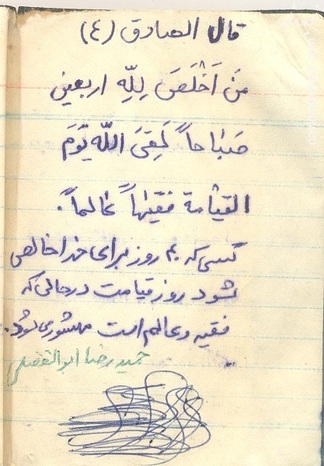 قال الصادق (ع)
مَن اَخْلَصَ لِلّهِ اربعین
صَبٰاحاً لَقِیَ اللّهَ یَوْمَ
القیٰامة فقیٖهاً عٰالماً.
کسی که ۴۰ روز برای خدا خالص
شود روز قیامت در حالی که
فقیه و عالم است محشور می‌شود.
حمیدرضا ابوالفضلی